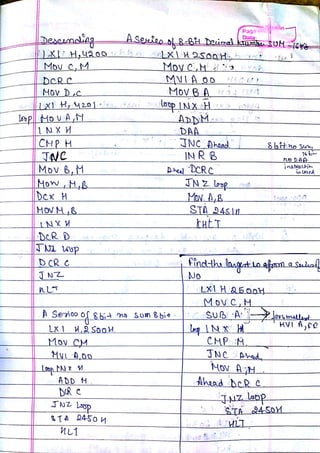 Descending
LXI H, 4200
MOV C, M
DCR C
MOV D, C
LXI H, 4201
loop MOV A, M
INX H
CMP M
JNC
MOV B, M
MOV M, B
DCX H
MOV M, B
INX H
DCR D
JNZ loop
DCR C
JNZ
HLT
A Series of 8bit no sum 8bit
LXI H, 2500H
MOV CM
MVI A, 00
loop INX H
ADD M
DCR C
JNZ Loop
STA 2450H
HLT
Page
Date
A Series of 8-Bit Decimal Number SUM - 16bit
LXI H 2500H
MOV C, M
MVI A 00
MOV B A
loop INX H
ADD M
DAA
JNC Ahead
INR B
Ahead DCRC
JNZ loop
MOV A, B
STA 2451H
HLT
8 bit no sum
16 bit
no DAA
instruction
is used
Find the largest no from a series of
NO
LXI H 2500H
MOV C, M
SUB 'A' → for smallest
MVI A, FF
loop INX H
CMP M
JNC Ahead
MOV A, M
Ahead DCR C
JNZ loop
STA 2450H
HLT